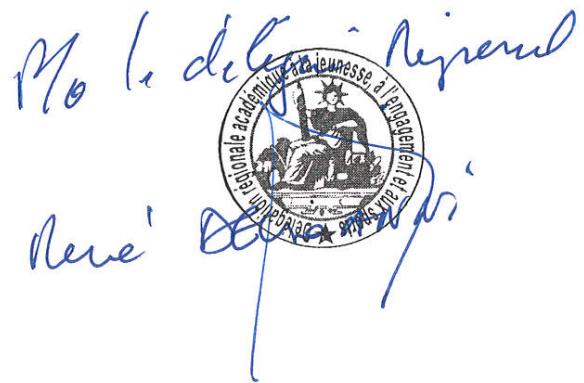 P/o le délégué Régional
Délégation régionale académique à la jeunesse, à l'engagement et aux sports
René